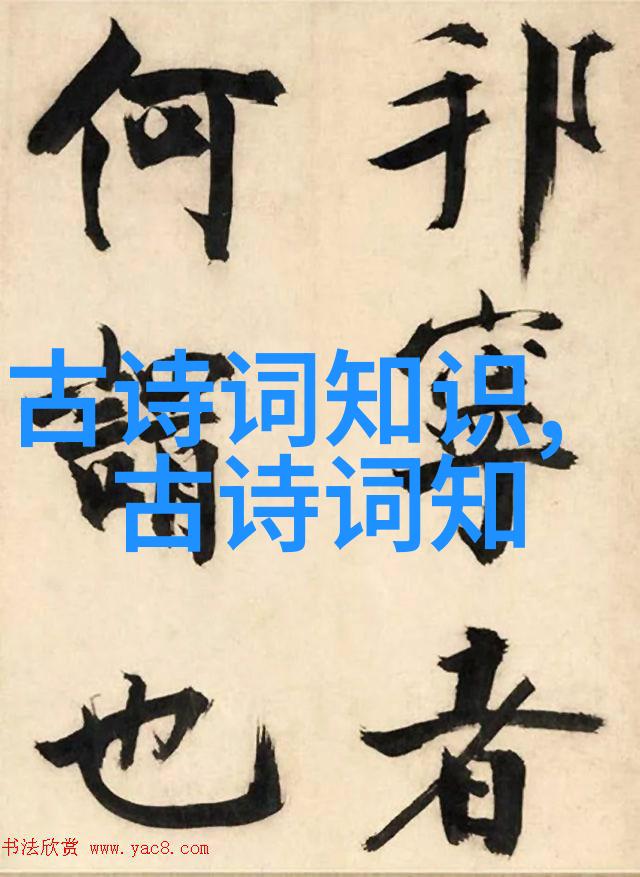 邦寧者
何謂也
古诗词知识,
古诗词知
书法欣赏 www.yac8.com